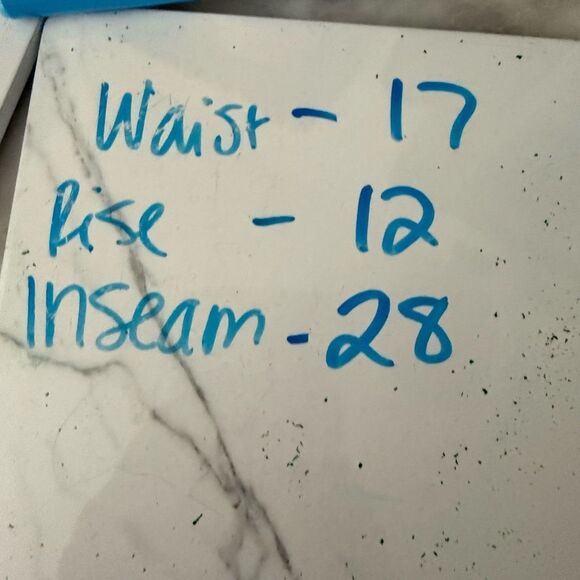 Waist - 17
Rise - 12
Inseam - 28